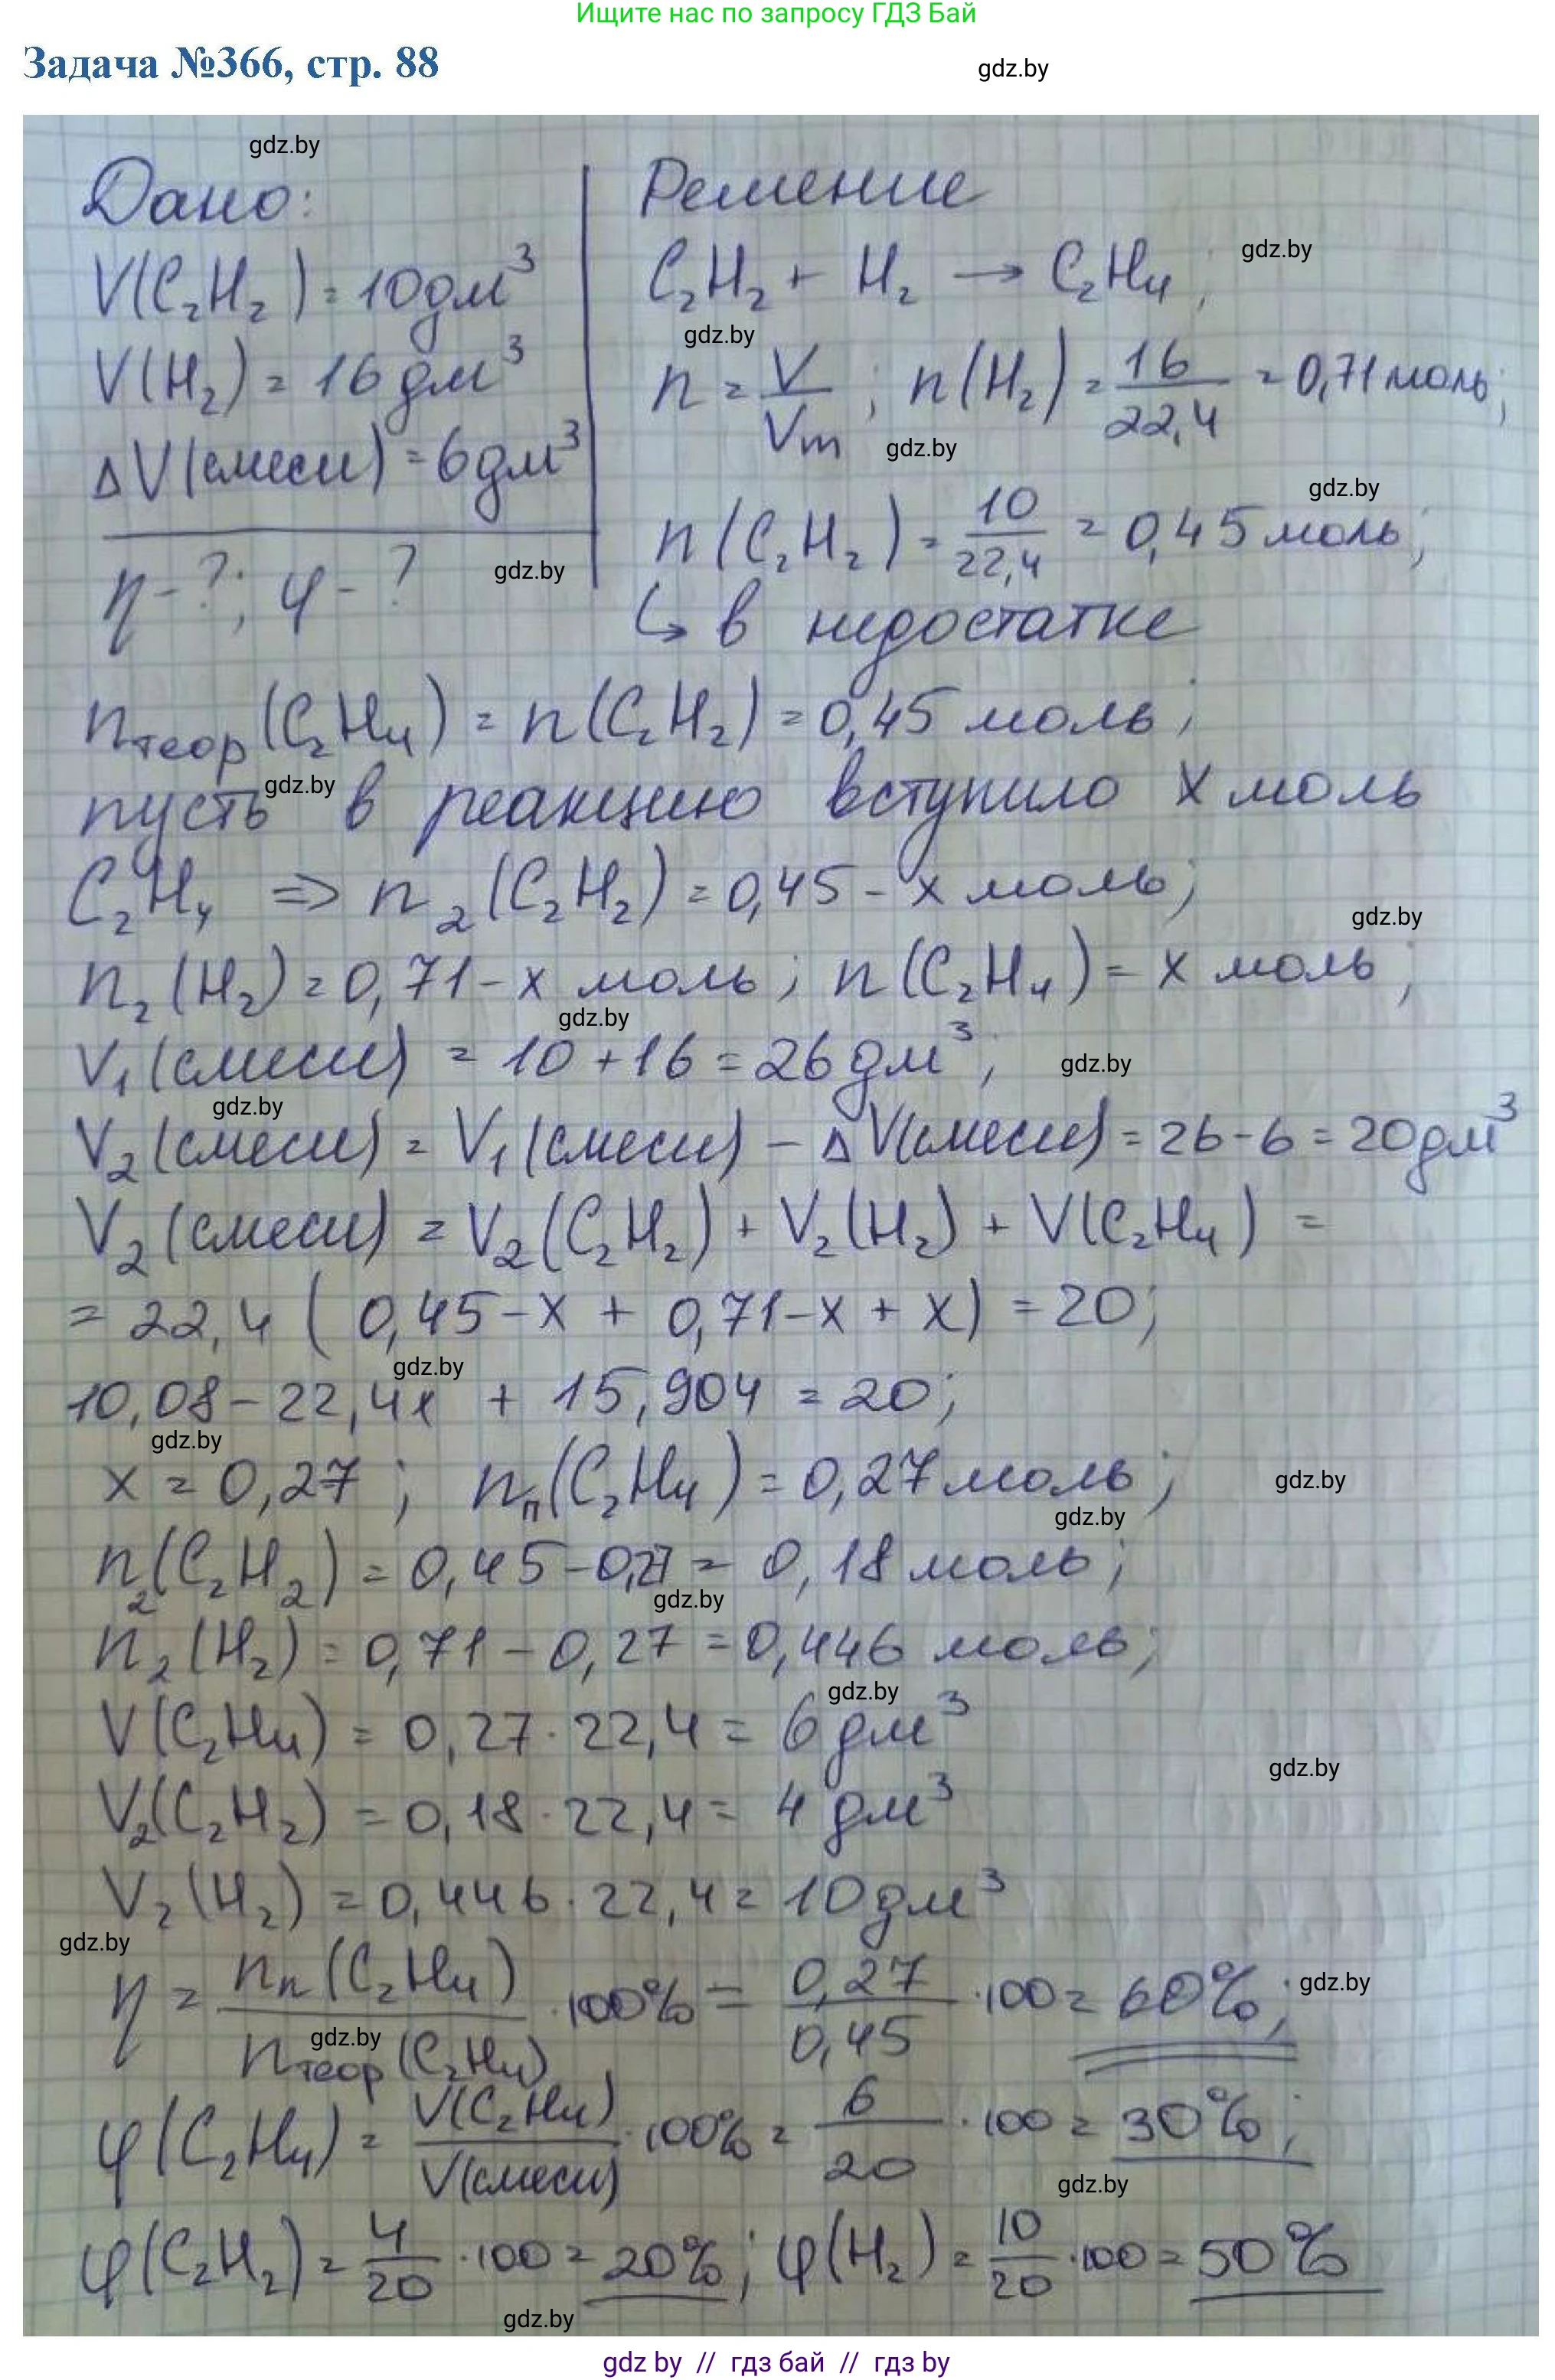 Ищите нас по запросу ГДЗ Бай
Задача №366, стр. 88
gdz.by
gdz.by
Дано:
V(C₂H₂) = 10 дм³
V(H₂) = 16 дм³
ΔV(смеси) = 6 дм³
η - ?; φ - ?
gdz.by
Решение
C₂H₂ + H₂ → C₂H₄;
gdz.by
gdz.by
n = V/Vm; n(H₂) = 16/22,4 = 0,71 моль;
gdz.by
gdz.by
n(C₂H₂) = 10/22,4 = 0,45 моль;
↳ в недостатке
nтеор(C₂H₄) = n(C₂H₂) = 0,45 моль;
gdz.by
пусть в реакцию вступило x моль
C₂H₄ ⇒ n₂(C₂H₂) = 0,45 - x моль;
gdz.by
n₂(H₂) = 0,71 - x моль; n(C₂H₄) = x моль;
gdz.by
V₁(смеси) = 10 + 16 = 26 дм³;
gdz.by
gdz.by
V₂(смеси) = V₁(смеси) - ΔV(смеси) = 26 - 6 = 20 дм³
V₂(смеси) = V₂(C₂H₂) + V₂(H₂) + V(C₂H₄) =
= 22,4 (0,45 - x + 0,71 - x + x) = 20;
gdz.by
10,08 - 22,4x + 15,904 = 20;
gdz.by
x = 0,27; nп(C₂H₄) = 0,27 моль;
gdz.by
gdz.by
n₂(C₂H₂) = 0,45 - 0,27 = 0,18 моль;
gdz.by
n₂(H₂) = 0,71 - 0,27 = 0,446 моль;
gdz.by
V(C₂H₄) = 0,27 · 22,4 = 6 дм³
gdz.by
V₂(C₂H₂) = 0,18 · 22,4 = 4 дм³
V₂(H₂) = 0,446 · 22,4 = 10 дм³
gdz.by
η = nп(C₂H₄)/nтеор(C₂H₄) · 100% = 0,27/0,45 · 100 = 60%;
gdz.by
gdz.by
φ(C₂H₄) = V(C₂H₄)/V(смеси) · 100% = 6/20 · 100 = 30%;
gdz.by
φ(C₂H₂) = 4/20 · 100 = 20%; φ(H₂) = 10/20 · 100 = 50%
gdz.by
gdz by // гдз бай // гдз by